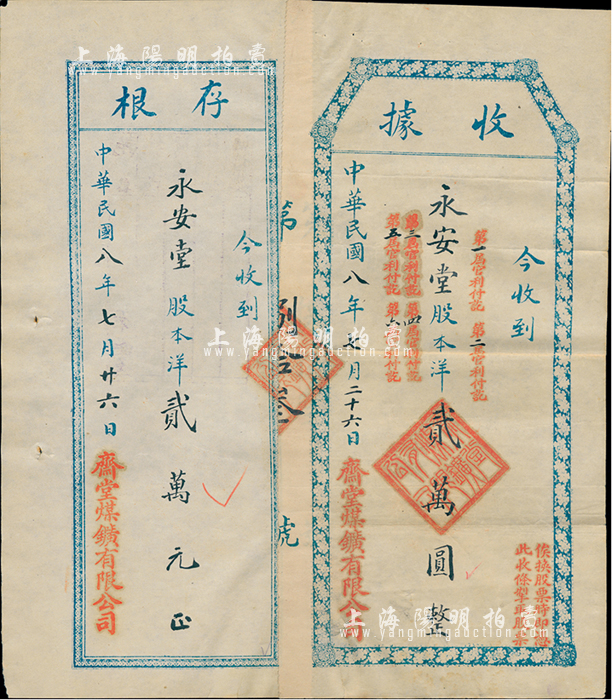 收據
今收到
永安堂股本洋貳萬圓整
第一屆官利付訖
第二屆官利付訖
第三屆官利付訖
第四屆官利付訖
第五屆官利付訖
第六屆官利付訖
中華民國八年七月二十六日
齋堂煤鑛有限公司
俟換股票時即憑
此收條掣換股票
第
號
存根
今收到
永安堂股本洋貳萬元正
中華民國八年七月廿六日
齋堂煤鑛有限公司
上海陽明拍賣
www.yangmingauction.com
上海陽明拍賣
www.yangmingauction.com
上海陽明拍賣
www.yangmingauction.com